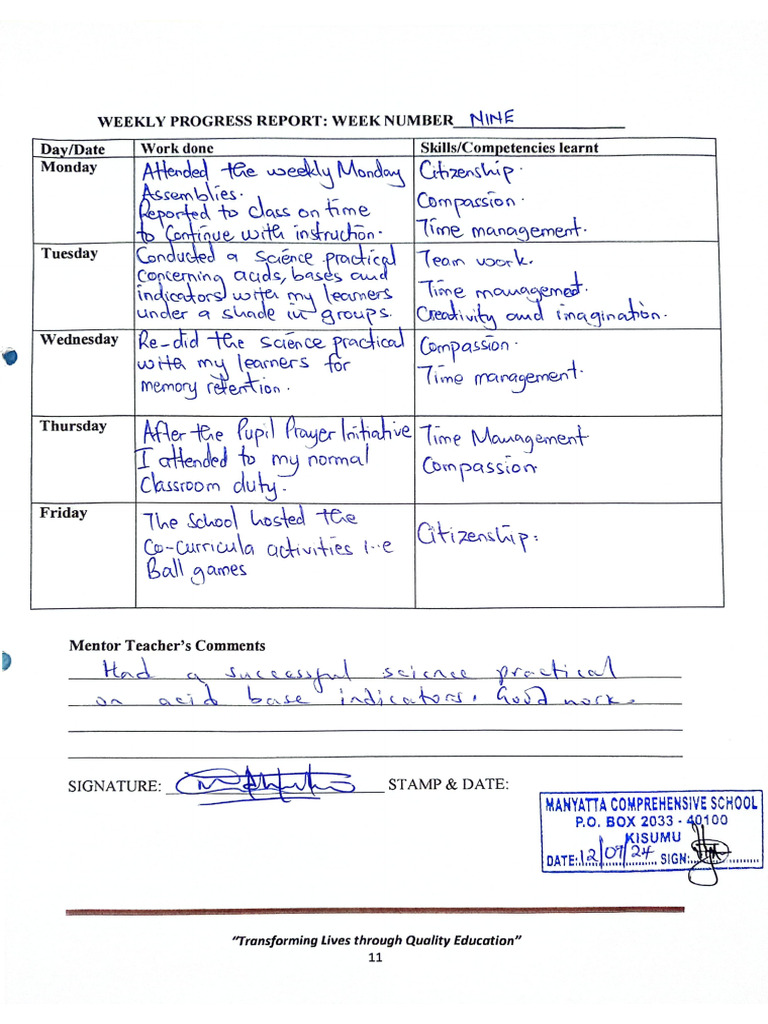 WEEKLY PROGRESS REPORT: WEEK NUMBER NINE
Day/Date Work done Skills/Competencies learnt
Monday
Attended the weekly Monday
Assemblies.
Reported to class on time
to continue with instruction.
Citizenship.
Compassion.
Time management.
Tuesday
Conducted a science practical
concerning acids, bases and
indicators with my learners
under a shade in groups.
Team work.
Time management.
Creativity and imagination.
Wednesday
Re-did the science practical
with my learners for
memory retention.
Compassion.
Time management.
Thursday
After the Pupil Prayer Initiative
I attended to my normal
Classroom duty.
Time Management
Compassion
Friday
The School hosted the
Co-curricula activities i.e
Ball games
Citizenship.
Mentor Teacher's Comments
Had a successful science practical
on acid base indicators. Good work.
SIGNATURE: STAMP & DATE:
MANYATTA COMPREHENSIVE SCHOOL
P.O. BOX 2033 - 40100
KISUMU
DATE: 12/07/24 SIGN:
"Transforming Lives through Quality Education"
11